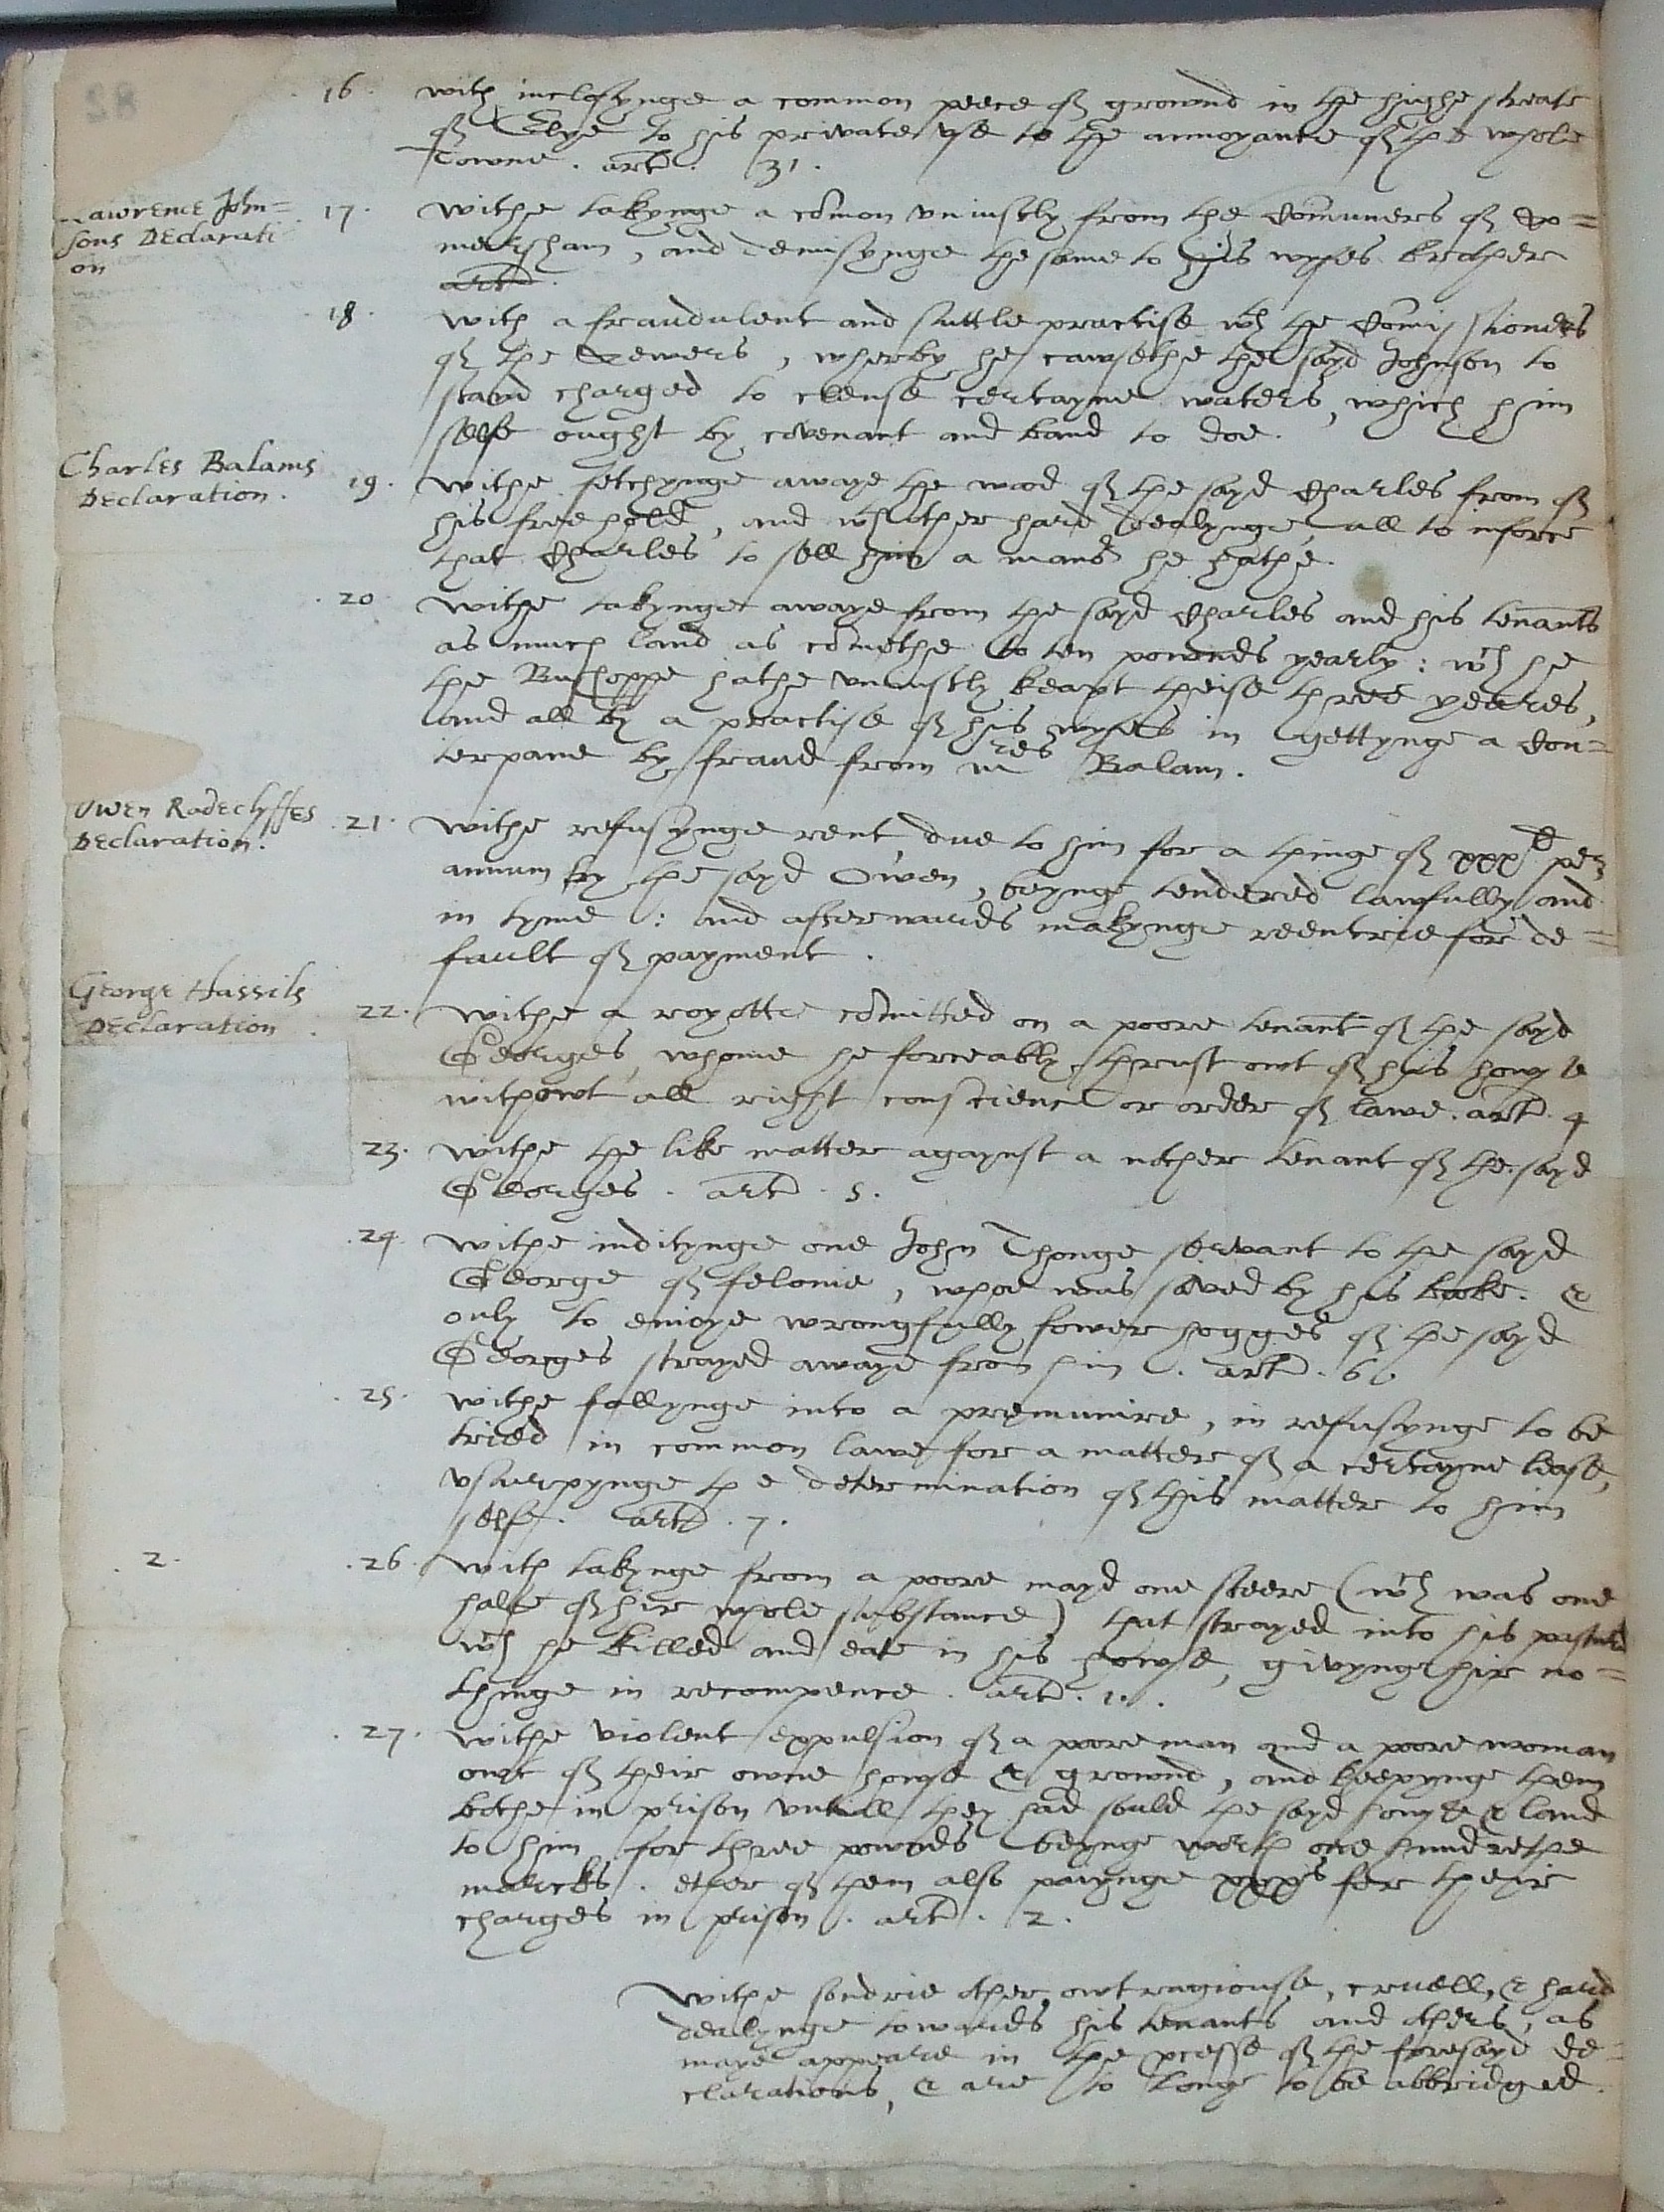 82
16. with inclosynge a common peece of grownd in the highe streate
of Elye to his private use to the annoyance of the whole
Towne. art. 31.
Lawrence John=
sons Declarati
on
17. withe takynge a comon uniustly from the Comuners of So=
mersham, and demisynge the same to his wyfes brother
art.
18. with a fraudulent and suttle practise wth the Comissioners
of the Sewers, wherby he cawsethe the sayd Johnson to
stand charged to clense certayne waters, which him
selfe ought by covenant and band to doe.
Charles Balams
Declaration.
19. withe fetchynge awaye the wood of the sayd Charles from of
his free hold, and wth other hard dealynge, all to inforce
that Charles to sell him a manor he hathe.
20 withe takynge awaye from the sayd Charles and his tenants
as much land as comethe to ten pownds yearly: wch he
the Bushoppe hathe uniustly keapt theise three yeares,
and all by a practise of his wyfes in gettynge a Cou=
terpane by fraud from mres Balam.
Owen Radeclyffes
Declaration.
21. withe refusynge rent due to him for a thinge of xxxl per
annum by the sayd Owen, beynge tendered lawfully and
in tyme: and afterwards makynge reentrie for de=
fault of payment.
George Hassils
Declaration.
22. withe a royotte comitted on a poore tenant of the sayd
Georges, whome he forceably thrust owt of his howse
withowt all right conscience or order of lawe. art. 4
23. withe the like matter agaynst a nother tenant of the sayd
Georges. art. 5.
24. withe inditynge one John Thonge servant to the sayd
George of felonie, whoe was saved by his booke. &
only to enioye wrongfully fower hogges of the sayd
Georges strayed awaye from him. art. 6.
25. withe fallynge into a premunire, in refusynge to be
tried in common lawe for a matter of a certayne lease,
usurpynge the determination of this matter to him
self. art. 7.
2.
26. with takynge from a poore mayd one steere (wch was one
halfe of hir whole substance) that strayed into his pasture
wch he killed and eate in his howse, givynge hir no=
thinge in recompence. art. 1.
27. withe violent expulsion of a poore man and a poore woman
owt of their owne howse & grownd, and keepynge them
bothe in prison untill they had sould the sayd howse & land
to him for three pownds beynge worth one hundrethe
marcks. ether of them also paiynge xxxs for their
charges in prison. art. 2.
withe sondrie other owtragiouse, cruell, & hard
dealynge towards his tenants and others, as
maye appeare in the pcesse of the foresayd de=
clarations, & are to longe to be abbridged.